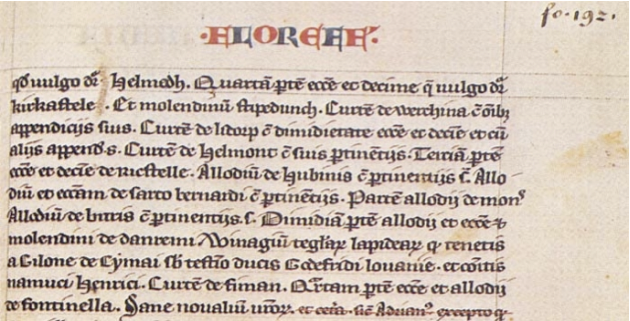 fo. 192.
·FLOREFF·
qd̄ vulgo dr̄. Helmedh. Quartā ptē ecce et decime q̄ uulgo dr̄
kirkastele. Et molendinū stipedunch. Curtē de werchina c̄ oīb;
appendicijs suis. Curtē de lidoup c̄ dimidietate ecce et decīe et cū
alijs append̄s. Curtē de Helmont c̄ suis ptinētijs. Terciā ptē
ecce et decīe de ricstelle. Allodiū de Hubinis c̄ ptinentijs s̄. Allo
diū et eccām de sarto bernardi c̄ ptinētijs. Partē allodij de mon
Allodiū de c̄ ptinentijs s. Dimidiā ptē allodij et ecce &
molendini de danremi Winagiū teglaꝝ lapideaꝝ q tenetis
a Gilone de Cymai sb testīo ducis Godefridi louanie. et comitis
namuci Henrici. Curtē de siman. Qrtam ptē ecce et allodij
de fontinella. Sane noualiū uroꝝ. et cet̄a. sic̄ Adrian. excepto q